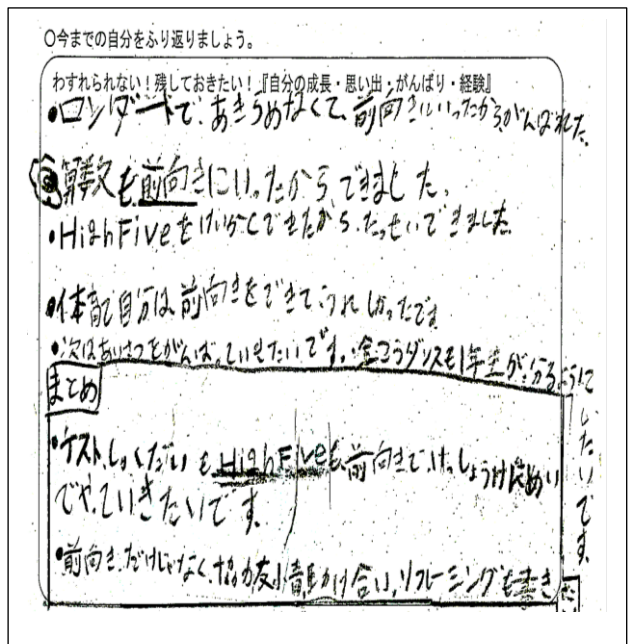 ○今までの自分をふり返りましょう。
わすれられない!残しておきたい!『自分の成長・思い出・がんばり・経験』
・ロンダートで、あきらめなくて、前向きにいったからがんばれた。
算数も前向きにいったから、できました。
・HighFiveをけいぞくできたから、たっせいできました
・体育で自分は、前向きをできてうれしかったです
・次はあいさつをがんばっていきたいです。全こうダンスも1年生が分るように
したいです。
まとめ
・テスト、しゅくだいもHighFiveも、前向きで、いっしょうけんめい
でやっていきたいです。
・前向きだけじゃなく、協力 かけ合い、リフレーミングも